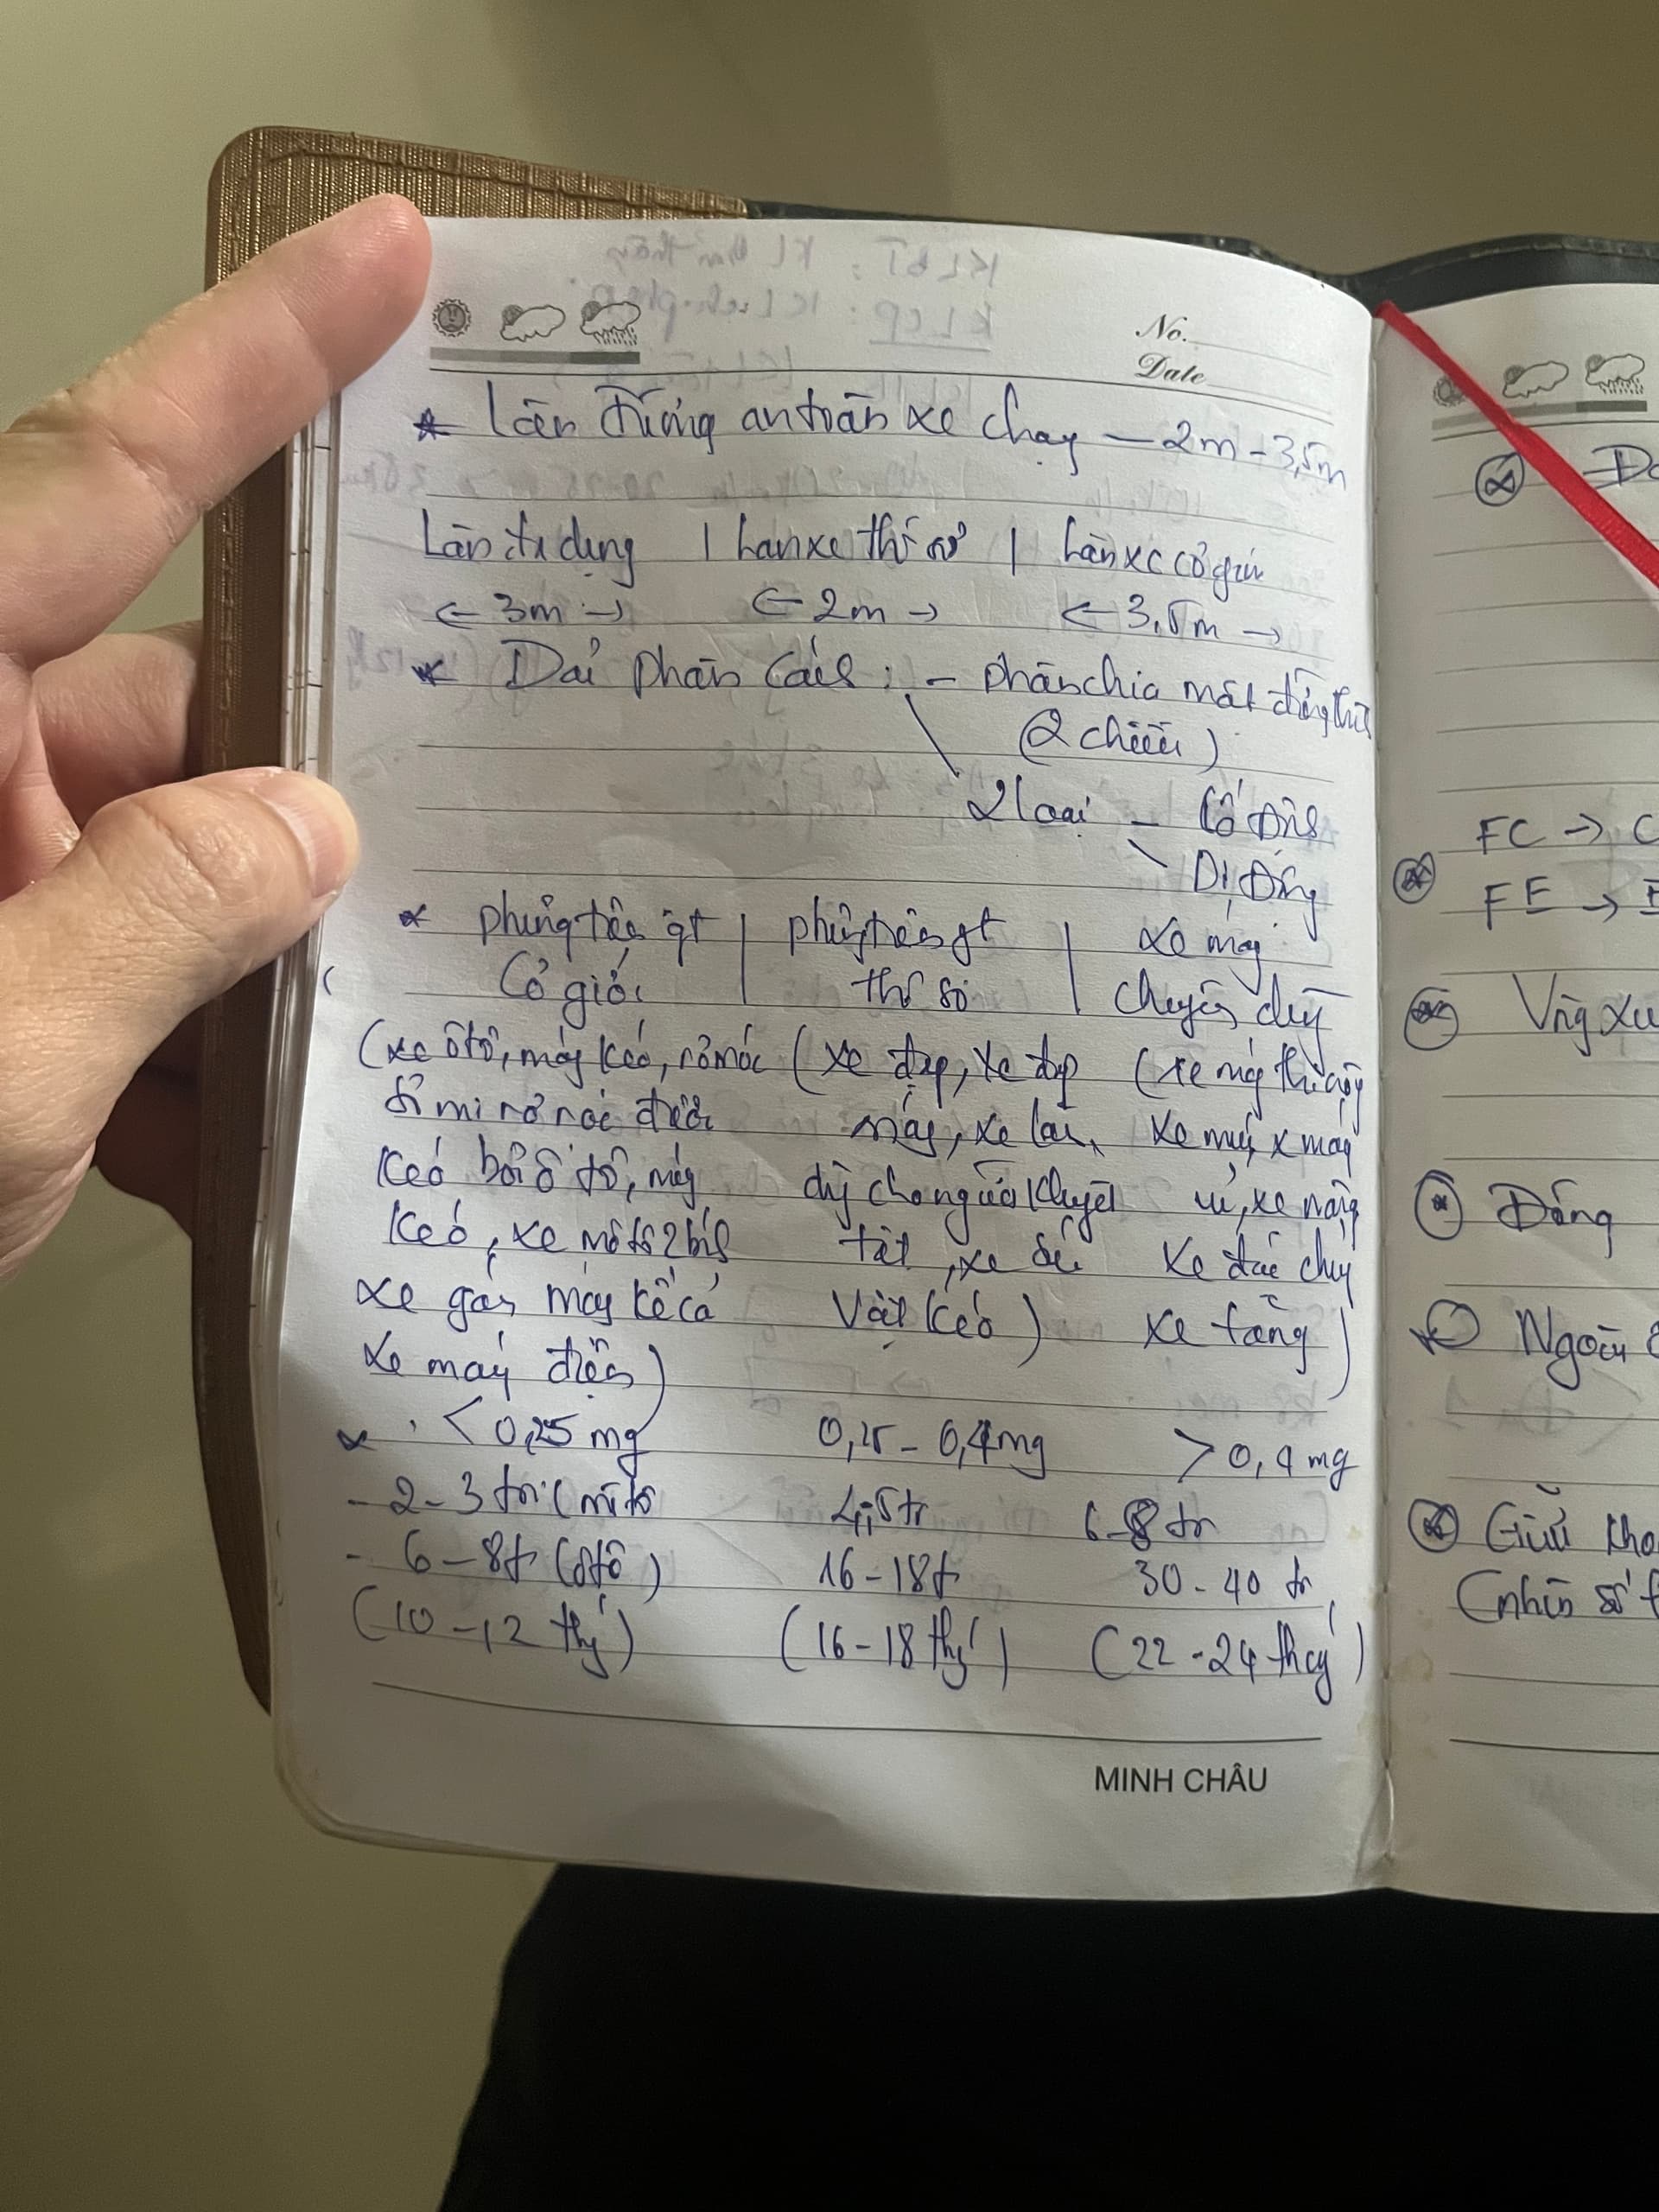 No.
Date
* Làn đường an toàn xe chạy – 2m – 3,5m
Làn đa dụng | Làn xe thô sơ | Làn xe cơ giới
← 3m → ← 2m → ← 3,5m →
* Dải phân cách : – phân chia mặt đường thành
(2 chiều)
2 loại – Cố định
Di Động
* phương tiện gt | phương tiện gt | xe máy
Cơ giới | thô sơ | chuyên dùng
(xe ôtô, máy kéo, rơ móc (xe đạp, xe đạp (xe máy thi công
sơ mi rơ moóc được máy, xe lăn xe máy
kéo bởi ô tô, máy dùng cho người khuyết xe nâng
kéo, xe mô tô 2 bánh tật, xe súc xe đặc chủng
xe gắn máy kể cả Vật kéo) xe tăng)
xe máy điện)
* < 0,25 mg 0,25 – 0,4mg > 0,4 mg
– 2 – 3 tr (mô tô 4-5 tr 6-8 tr
– 6 – 8 tr (ôtô) 16 – 18 tr 30 - 40 tr
(10 – 12 thg) (16 – 18 thg) (22 - 24 tháng)
MINH CHÂU
FC → C
FE →
Vòng xu
Dừng
Ngoài
Giữ kho
(nhìn số